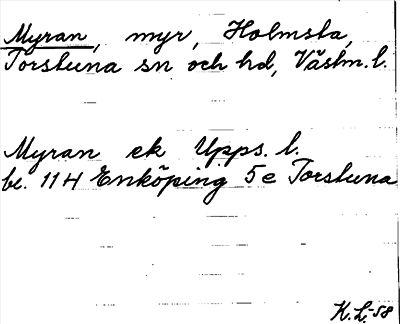 Myran, myr, Holmsta,
Torstuna sn och hd, Västm. l.
Myran ek Upps. l.
bl. 11H Enköping 5e Torstuna
K.L-58